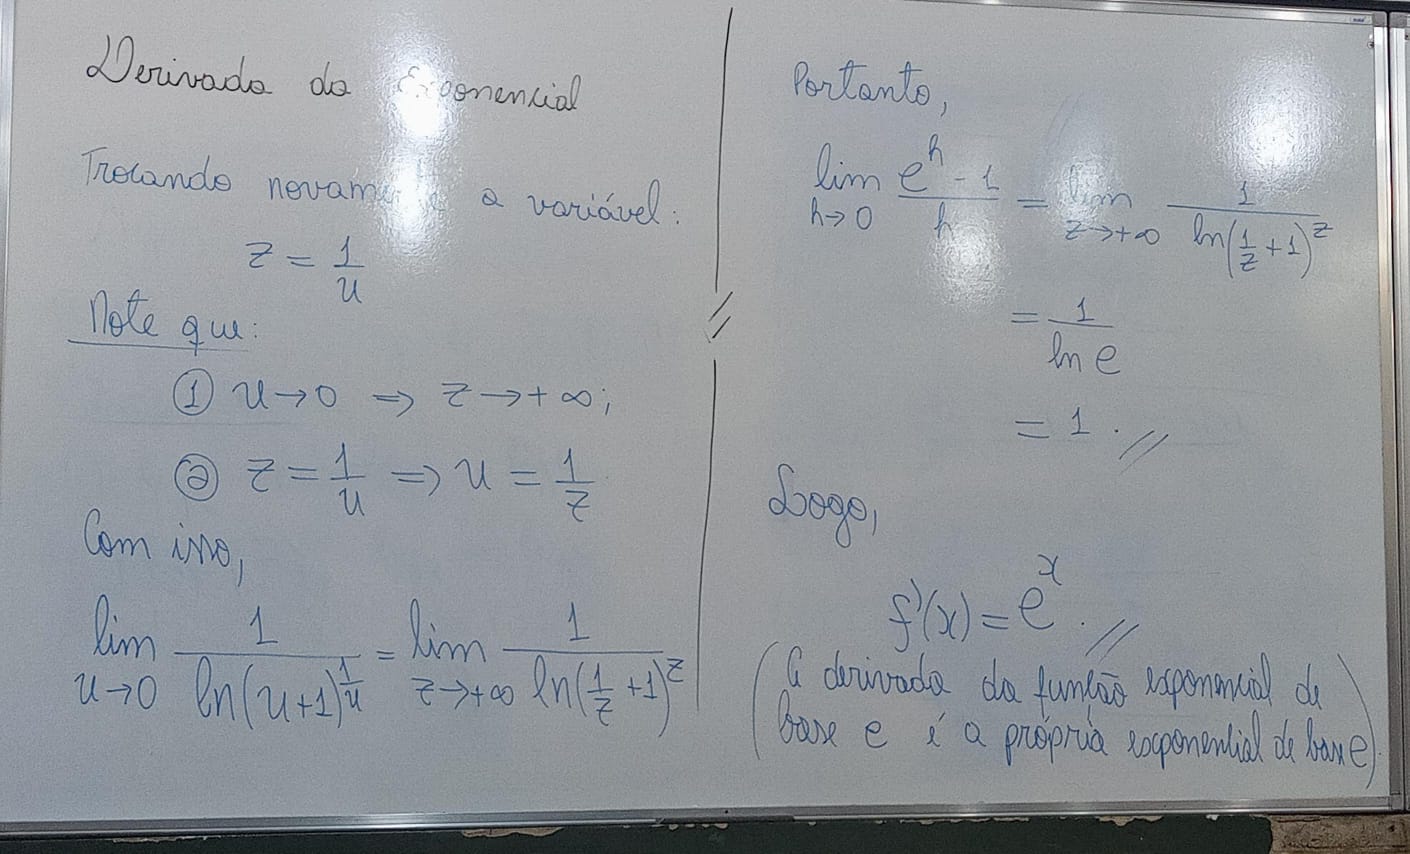 Derivada da Exponencial
Trocando novamente a variável:
z = 1/u
Note que:
① u→0 ⇒ z→+∞;
② z = 1/u ⇒ u = 1/z
Com isso,
lim u→0 1/ln(u+1)^(1/u) = lim z→+∞ 1/ln(1/z +1)^z
Portanto,
lim h→0 (e^h - 1)/h = lim z→+∞ 1/ln(1/z +1)^z
= 1/ln e
= 1. //
Logo,
f'(x) = e^x. //
(A derivada da função exponencial de
base e é a própria exponencial de base e).